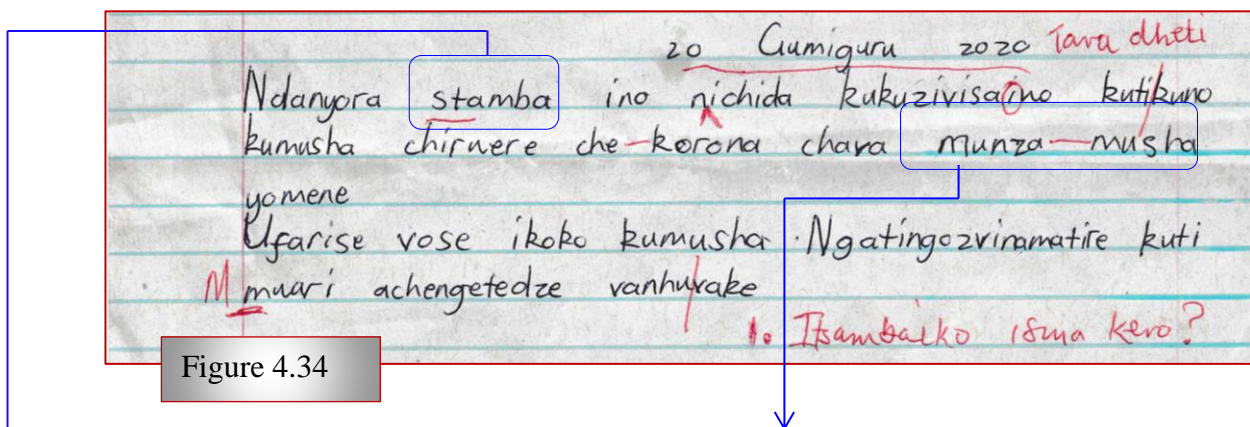 20 Gumiguru 2020 Tara dheti
Ndanyora stamba ino nichida kukuzivisaino kutikuno
kumusha chirwere che korona chava munza musha
yomene
Ufarise vose ikoko kumusha. Ngatingozvinamatire kuti
M muari achengetedze vanhuvake
1. Itsambaiko isina kero?
Figure 4.34